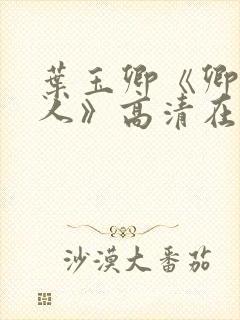 葉玉卿《卿
人》高清在
沙漠大番茄